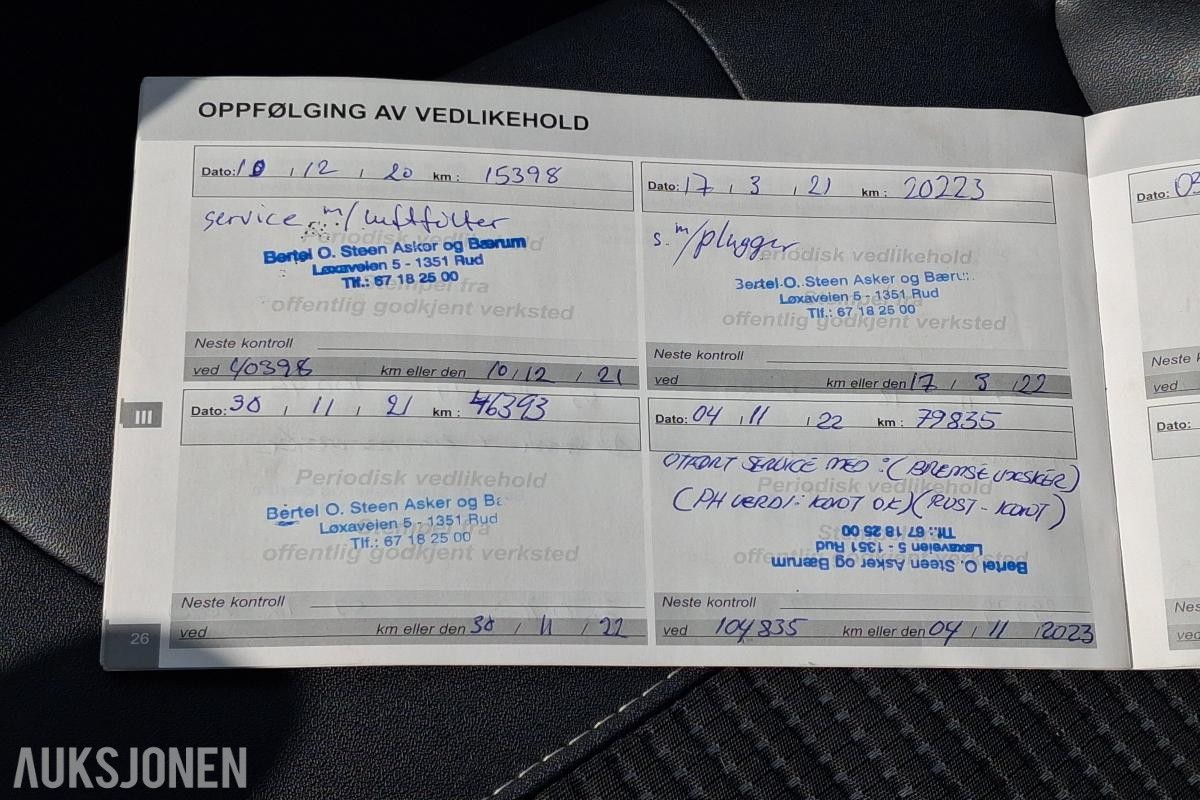 OPPFØLGING AV VEDLIKEHOLD
Dato: 10 / 12 / 20 km: 15398
service m/luftfilter
Periodisk vedlikehold
Bertel O. Steen Asker og Bærum
Løxaveien 5 - 1351 Rud
Tlf.: 67 18 25 00
Stempel fra
offentlig godkjent verksted
Neste kontroll
ved 40398 km eller den 10 / 12 / 21
Dato: 17 / 3 / 21 km: 20223
s. m/plugger
Periodisk vedlikehold
Bertel O. Steen Asker og Bæru
Løxaveien 5 - 1351 Rud
Tlf.: 67 18 25 00
Stempel fra
offentlig godkjent verksted
Neste kontroll
ved km eller den 17 / 3 / 22
III
Dato: 30 / 11 / 21 km: 46393
Periodisk vedlikehold
Bertel O. Steen Asker og Bæ
Løxaveien 5 - 1351 Rud
Tlf.: 67 18 25 00
offentlig godkjent verksted
Neste kontroll
ved km eller den 30 / 11 / 22
Dato: 04 / 11 / 22 km: 79835
UTFØRT SERVICE MED: (BREMSEVÆSKER)
Periodisk vedlikehold
(PH VERDI: KONT OK) (RUST-KONT)
Tlf.: 67 18 25 00
Løxaveien 5 - 1351 Rud
Bertel O. Steen Asker og Bærum
offentlig godkjent verksted
Neste kontroll
ved 104835 km eller den 04 / 11 / 2023
26
Dato: 03
Neste k
ved
Dato:
Nes
ved
AUKSJONEN